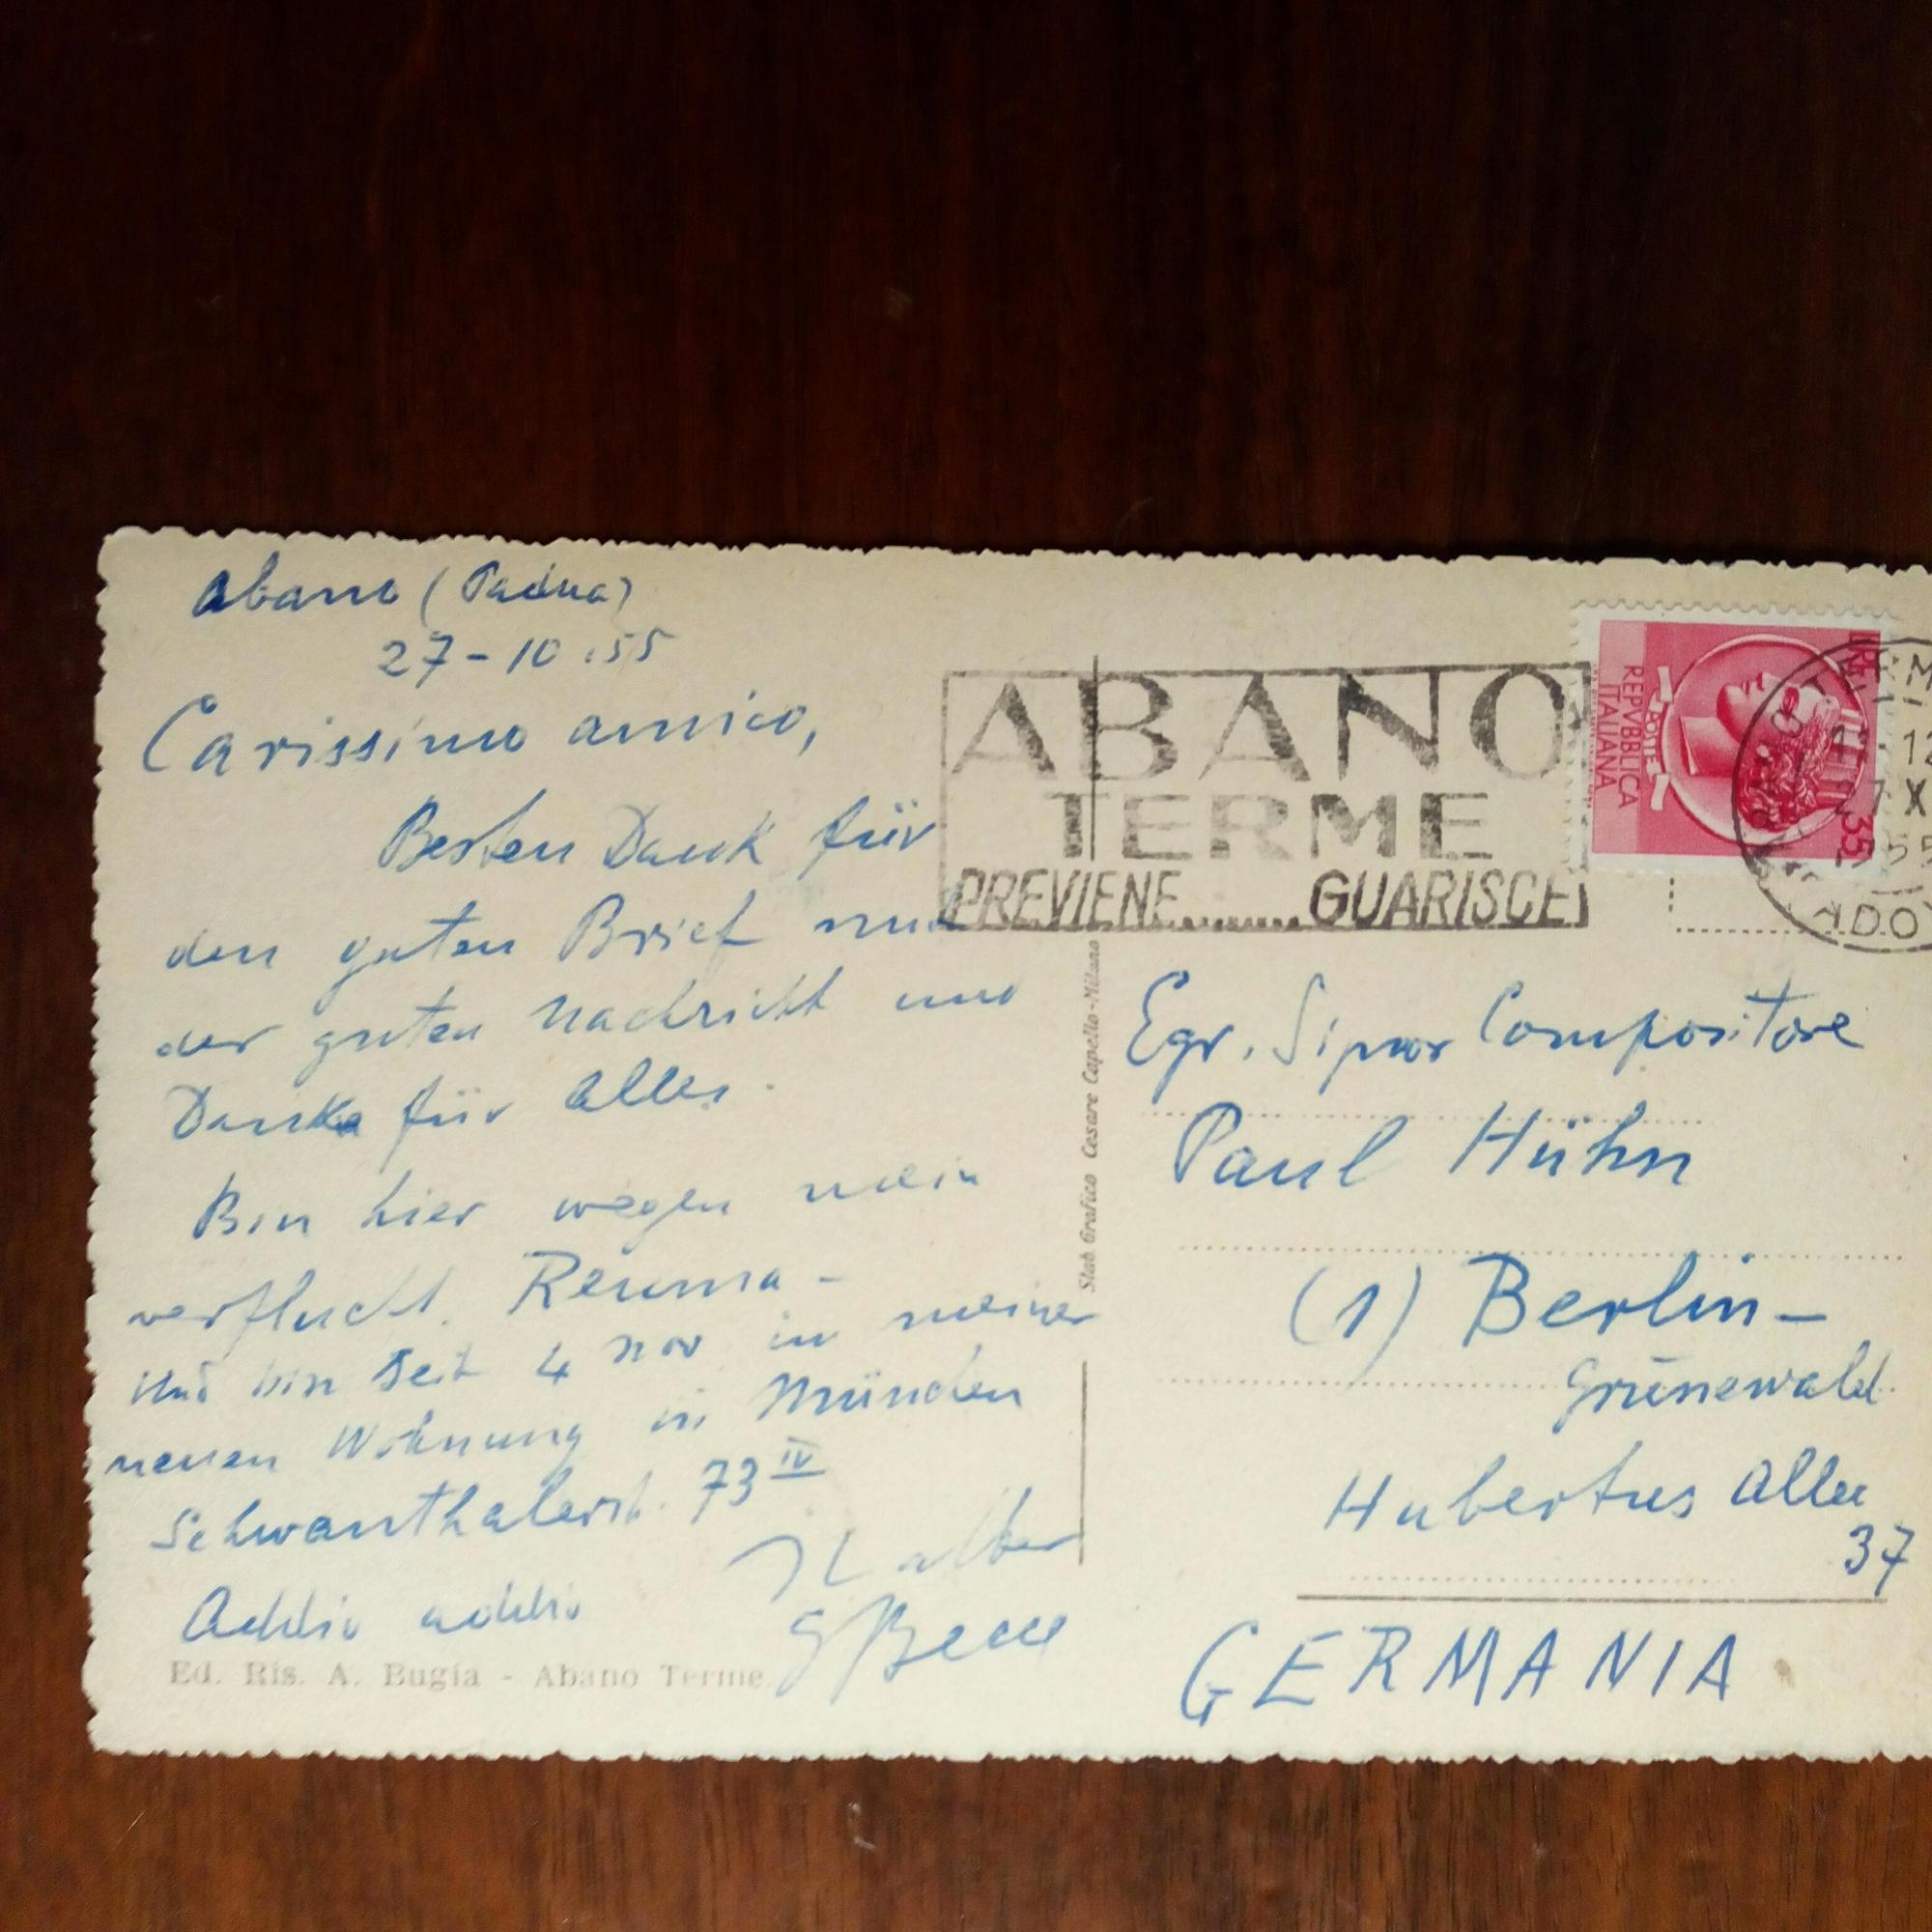 Abano (Padua)
27-10.55
Carissimo amico,
Besten Dank für
den guten Brief und
der guten Nachricht und
Danke für Alles.
Bin hier wegen mein
verflucht. Reuma-
und bin seit 4 Nov in meiner
neuen Wohnung in München
Schwanthalerst. 73 IV
Addio addio
GBecce
Ed. Ris. A. Bugia - Abano Terme
Stab. Grafico Cesare Capello-Milano
ABANO
TERME
PREVIENE........GUARISCE
POSTE
REPVBBLICA
ITALIANA
LIRE
35
12
X
55
Egr. Signor Compositore
Paul Hühn
(1) Berlin-
Grünewald
Hubertus Allee
37
GERMANIA